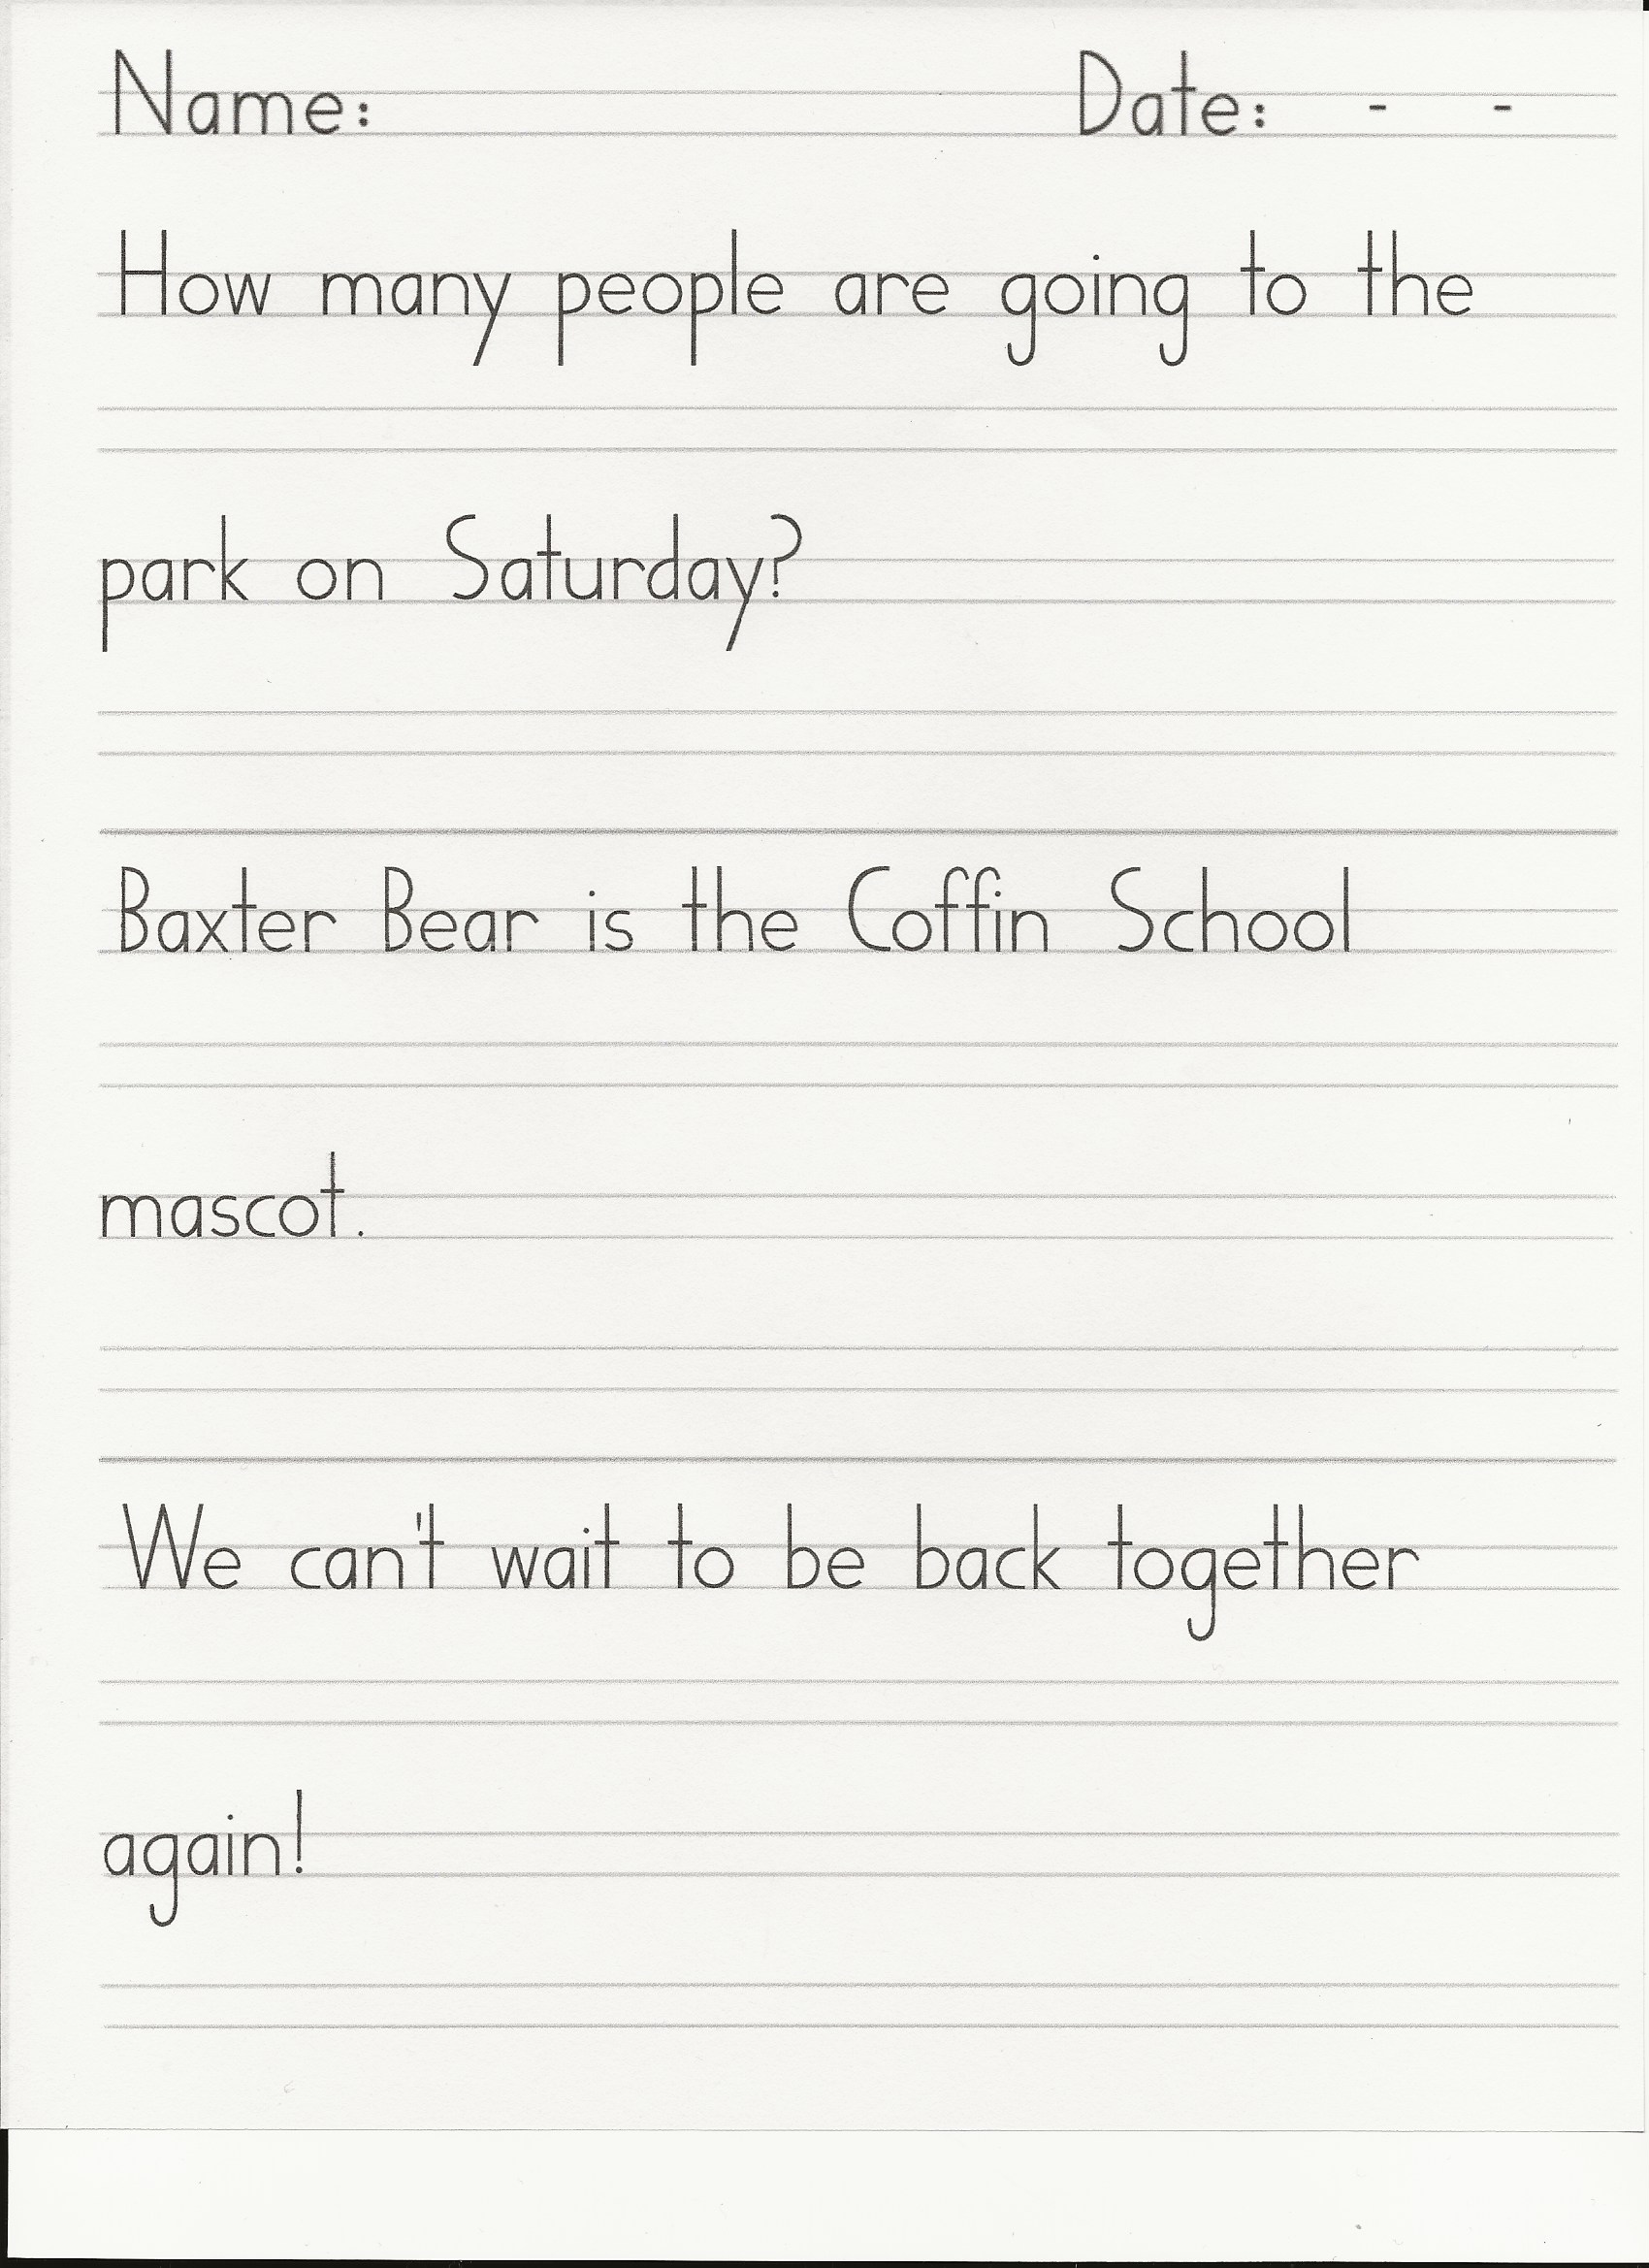 Name: Date: - -
How many people are going to the
park on Saturday?
Baxter Bear is the Coffin School
mascot.
We can't wait to be back together
again!